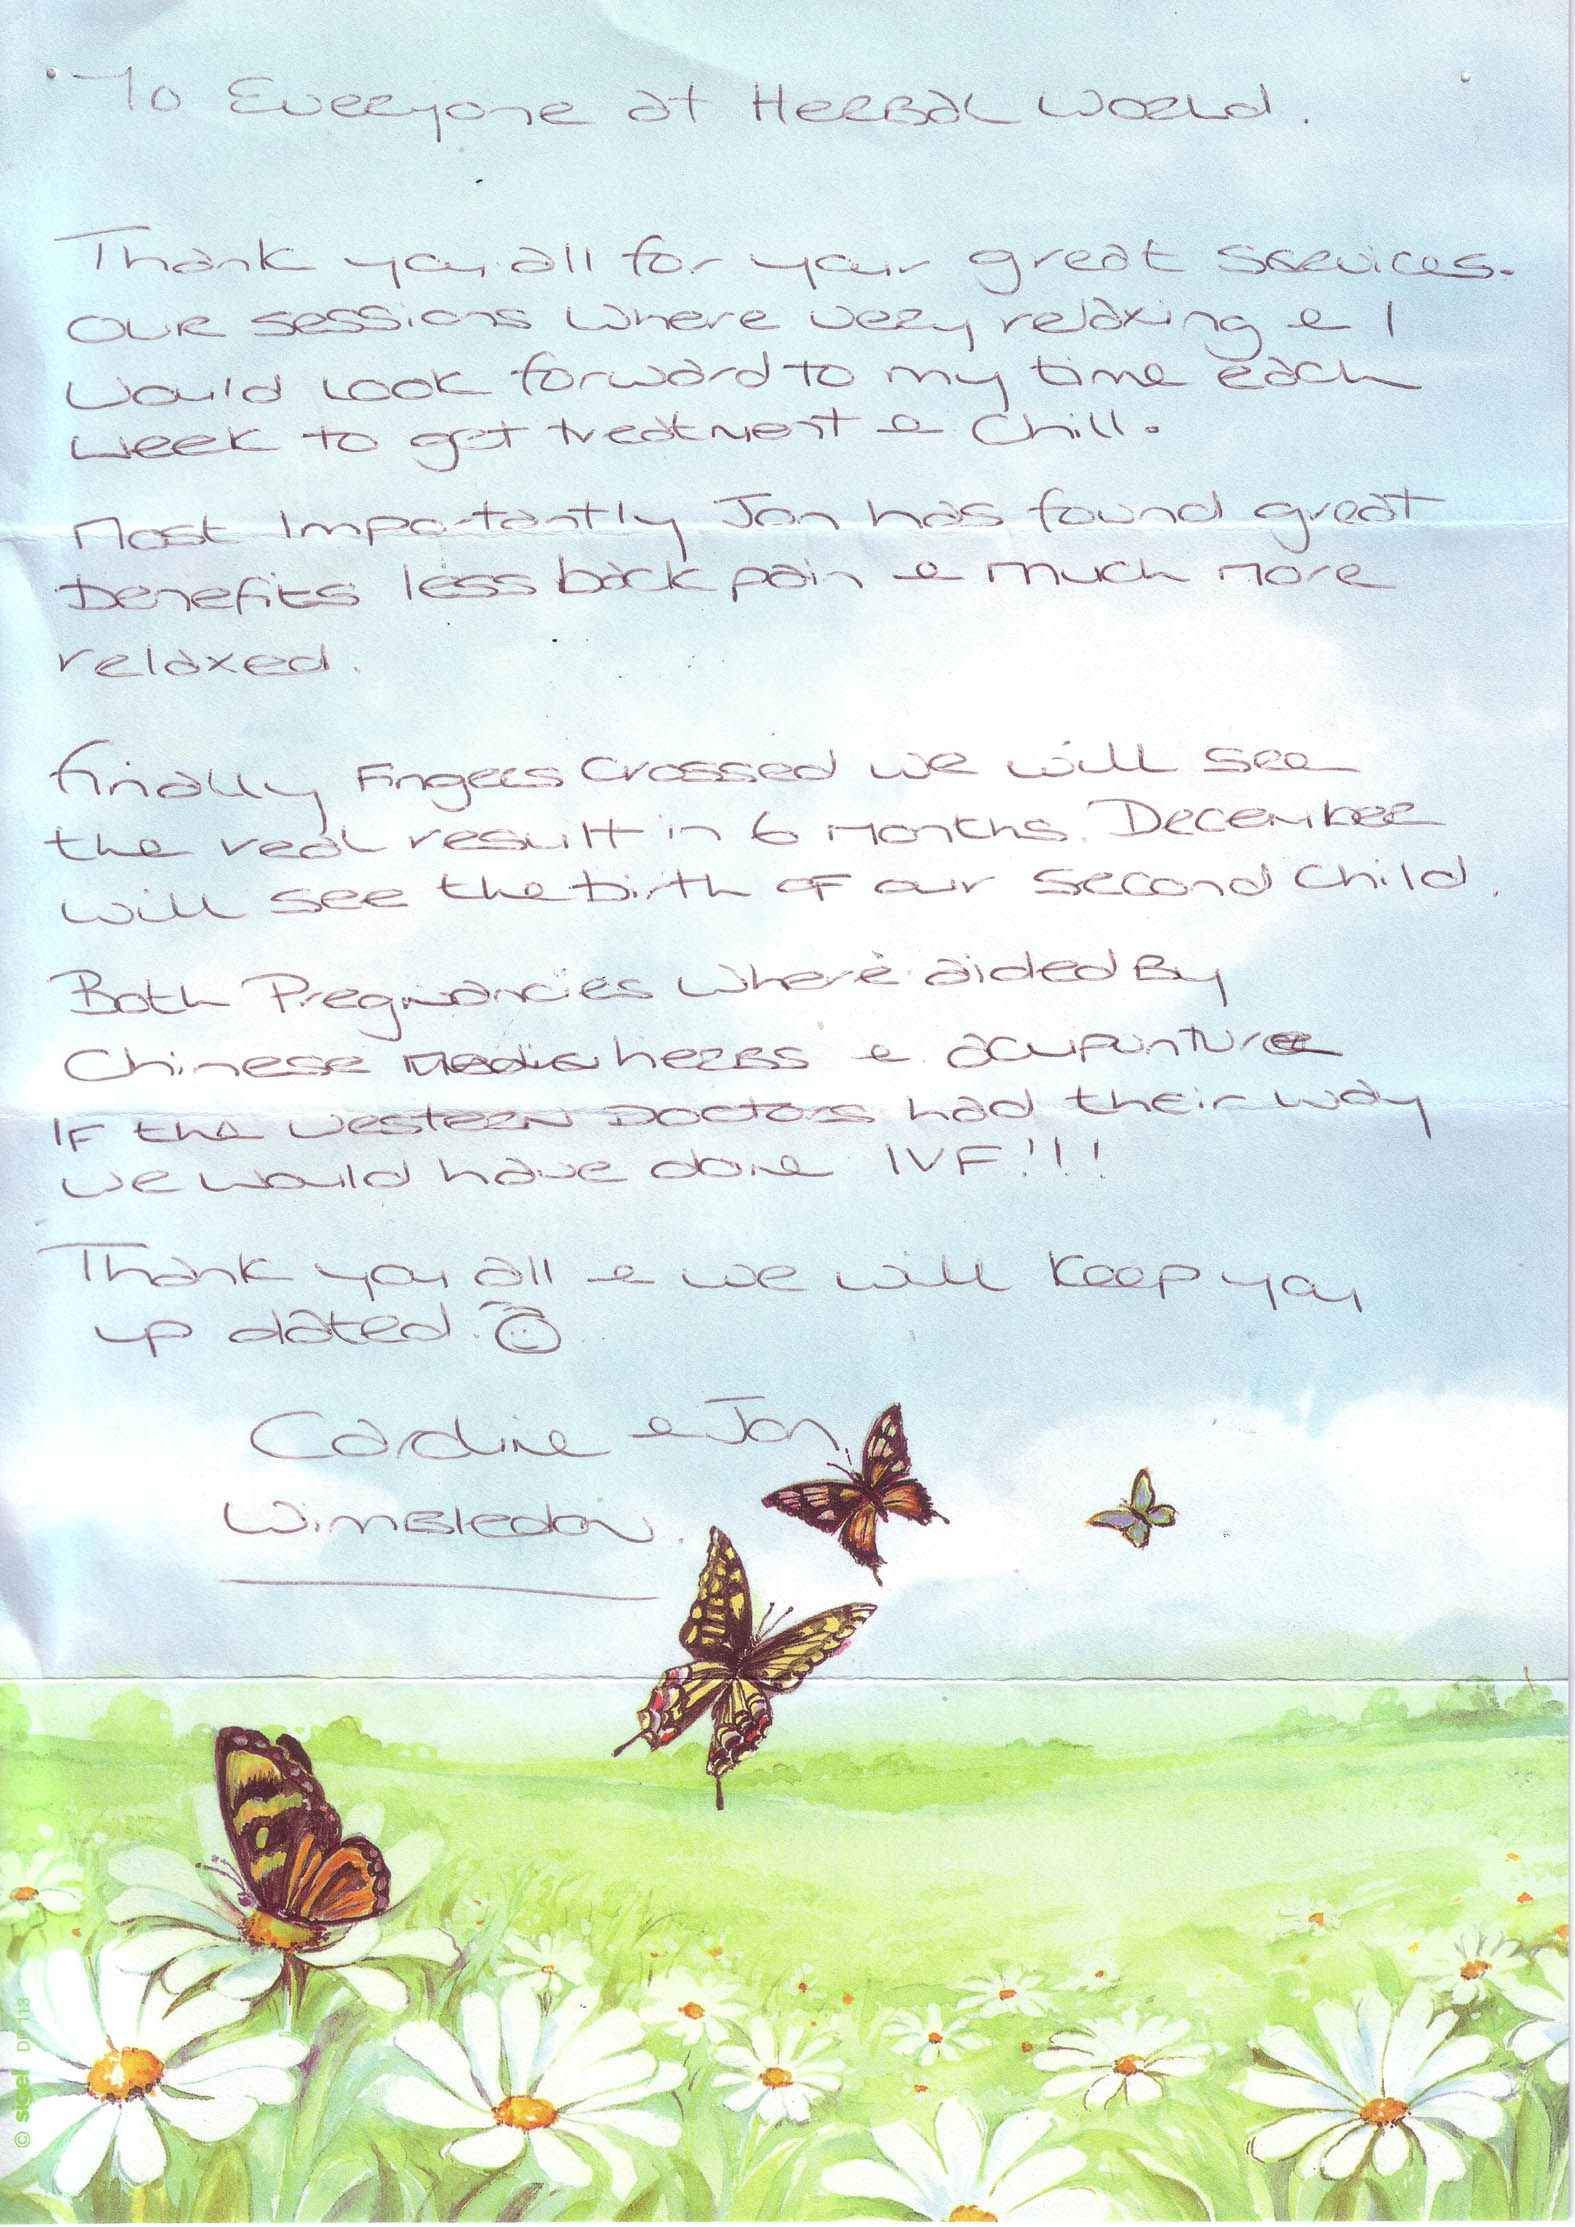 To Everyone at Herbal World.
Thank you all for your great services.
Our sessions where very relaxing & I
would look forward to my time each
week to get treatment & chill.
Most Importantly Jon has found great
benefits less back pain & much more
relaxed.
Finally Fingers Crossed we will see
the real result in 6 months. December
will see the birth of our second child.
Both Pregnancies where aided By
Chinese herbs & acupunture
If the western Doctors had their way
we would have done IVF!!!
Thank you all & we will keep you
up dated
Caroline & Jon
Wimbledon.
© sigel DP 113